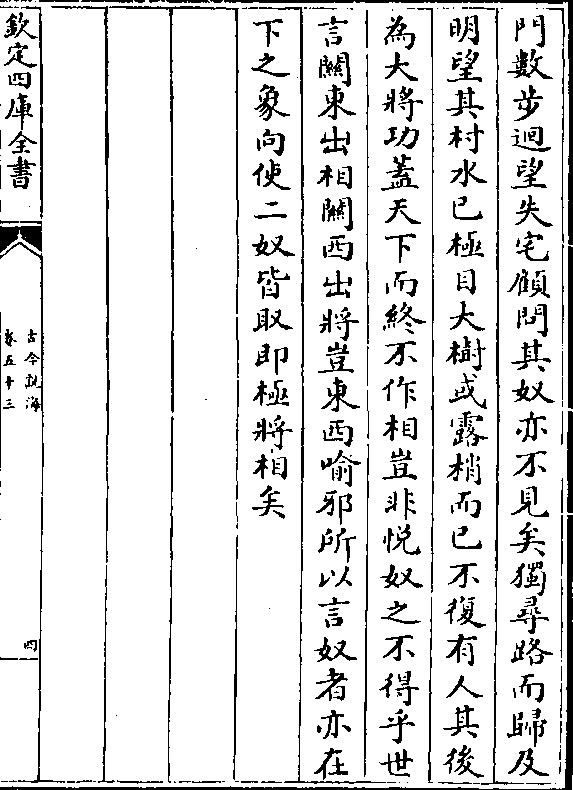 門數步迴望失宅顧問其奴亦不見矣獨尋路而歸及
明望其村水已極目大樹或露梢而已不復有人其後
為大將功蓋天下而終不作相豈非悦奴之不得乎世
言關東出相關西出將豈東西喻邪所以言奴者亦在
下之象向使二奴皆取即極將相矣
欽定四庫全書
古今說海
卷五十三
四